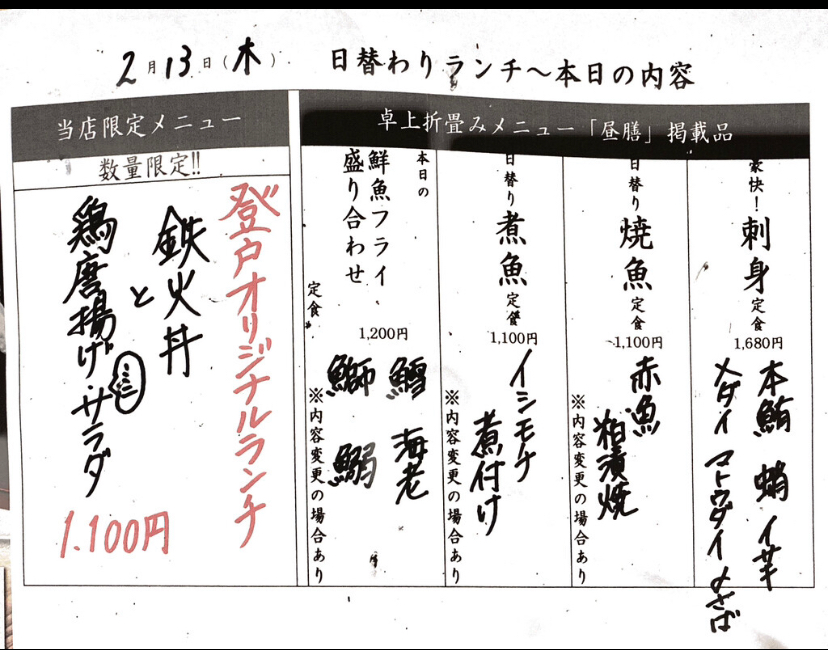 2月13日(木) 日替わりランチ〜本日の内容
当店限定メニュー
数量限定!!
登戸オリジナルランチ
鉄火丼
と
鶏唐揚げ・サラダ
1.100円
卓上折畳みメニュー「昼膳」掲載品
豪快!
刺身定食
1,680円
本鮪 蛸 イサキ
メダイ マトウダイ 〆さば
日替り
焼魚定食
1,100円
赤魚
粕漬焼
※内容変更の場合あり
日替り
煮魚定食
1,100円
イシモチ
煮付け
※内容変更の場合あり
本日の
鮮魚フライ
盛り合わせ
定食
1,200円
鱈 海老
鰤 鰯
※内容変更の場合あり